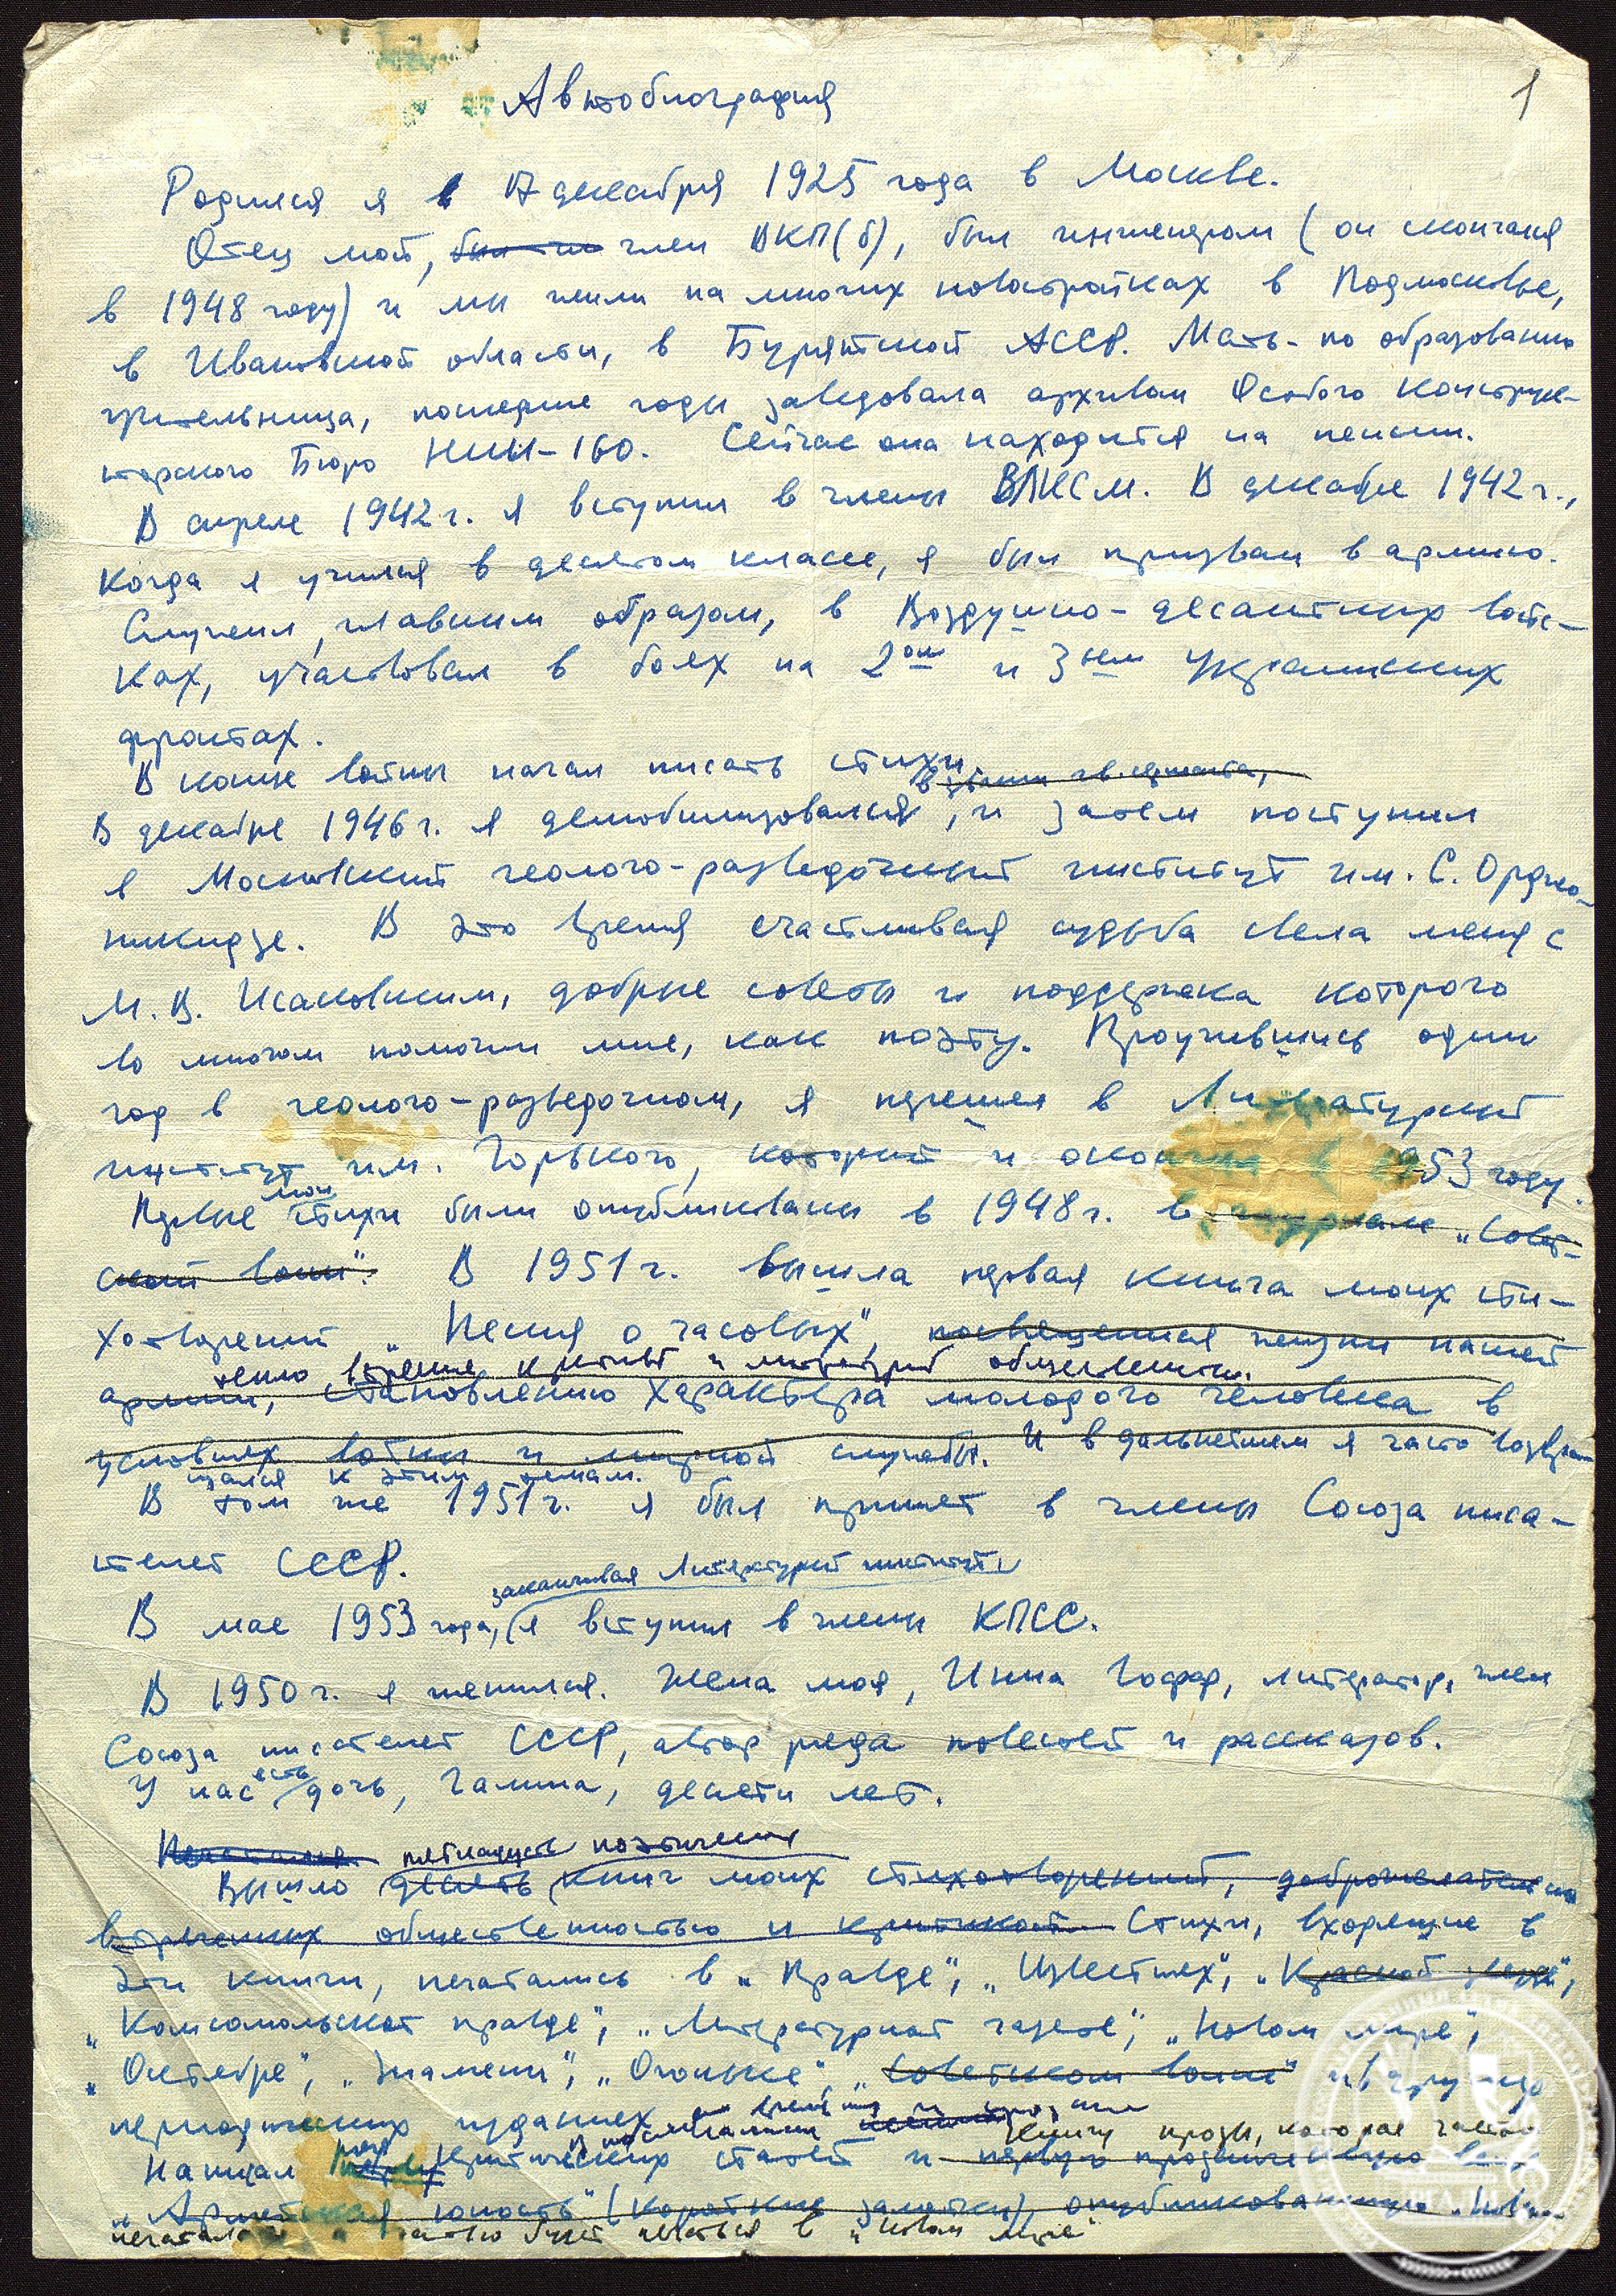 1
Автобиография
Родился я в 17 декабря 1925 года в Москве.
Отец мой, был чл член ВКП(б), был инженером (он скончался
в 1948 году) и мы жили на многих новостройках в Подмосковье,
в Ивановской области, в Бурятской АССР. Мать - по образованию
учительница, последние годы заведовала архивом Особого Конструк-
торского Бюро НИИ-160. Сейчас она находится на пенсии.
В апреле 1942 г. я вступил в члены ВЛКСМ. В декабре 1942 г.,
когда я учился в десятом классе, я был призван в армию.
Служил, главным образом, в Воздушно-десантных войс-
ках, участвовал в боях на 2ом и 3ьем Украинских
фронтах.
В конце войны начал писать стихи.
в звании гв. сержанта,
В декабре 1946 г. я демобилизовался, и затем поступил
в Московский геолого-разведочный институт им. С. Орджо-
никидзе. В это время счастливая судьба свела меня с
М. В. Исаковским, добрые советы и поддержка которого
во многом помогли мне, как поэту. Проучившись один
год в геолого-разведочном, я перешел в Литературный
институт им. Горького, который и окончил в 1953 году.
мои
Первые стихи были опубликованы в 1948 г. в журнале „Совет-
ский воин". В 1951 г. вышла первая книга моих сти-
хотворений „Песня о часовых", посвященная жизни нашей
тепло встречена критикой и литературной общественностью.
армии, становлению характера молодого человека в
условиях войны и мирной службы. И в дальнейшем я часто возвра-
щался к этим темам.
В том же 1951 г. я был принят в члены Союза писа-
телей СССР.
заканчивая Литературный институт,
В мае 1953 года, я вступил в члены КПСС.
В 1950 г. я женился. Жена моя, Инна Гофф, литератор, член
Союза писателей СССР, автор ряда повестей и рассказов.
есть
У нас дочь, Галина, десяти лет.
пятнадцать поэтических
Вышло десять книг моих стихотворений, доброжелательно
встреченных общественностью и критикой. Стихи, входящие в
эти книги, печатались в „Правде", „Известиях", „Красной звезде",
„Комсомольской правде", „Литературной газете", „Новом мире",
„Октябре", „Знамени", „Огоньке", „Советском воине" и в других
периодических изданиях
книгу прозы, которая частью
Написал ряд критических статей и первую прозаическую вещь
„Армейская юность" (короткие заметки) опубликованную
печаталась а частью будет печататься в „Новом мире"